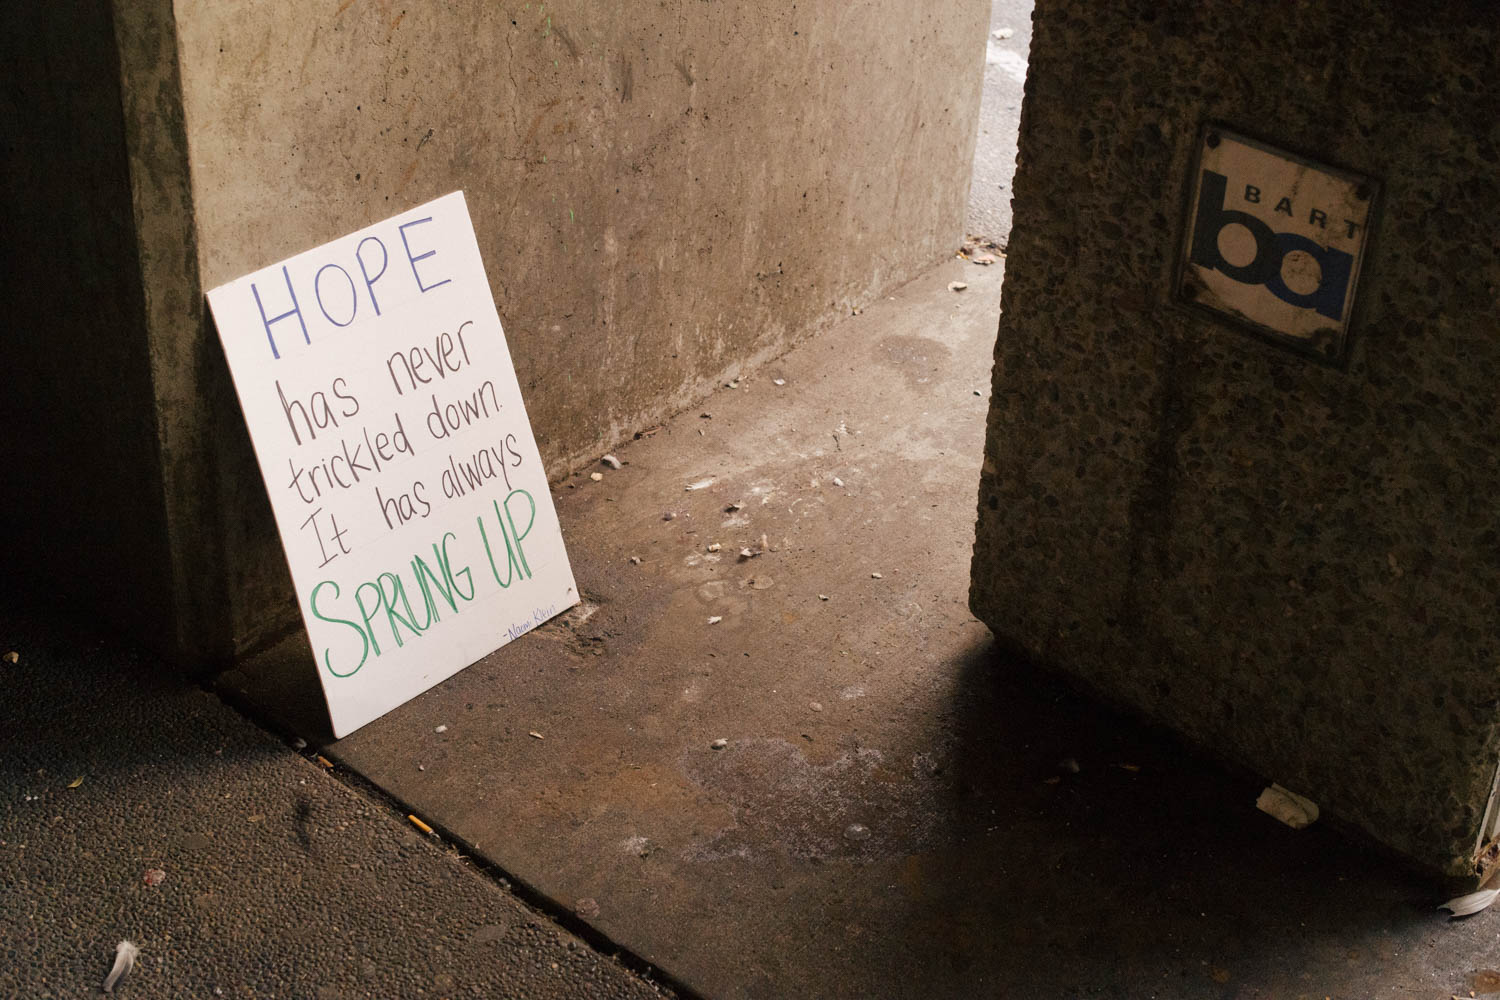 HOPE
has never
trickled down.
It has always
SPRUNG UP
-Naomi Klein
BART
ba